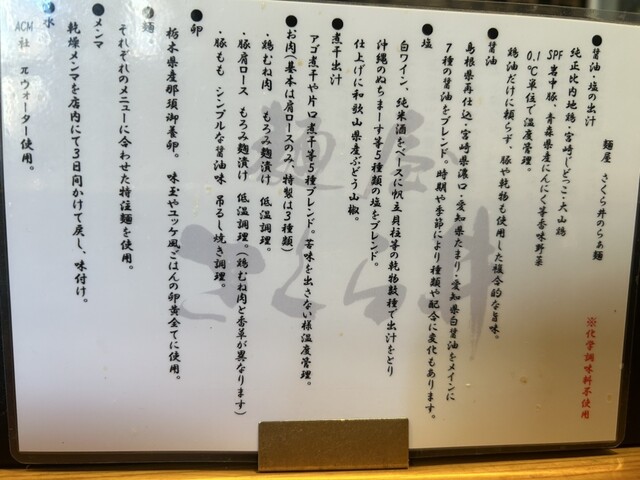 麺屋 さくら井のらぁ麺
※化学調味料不使用
●醤油・塩の出汁
純正比内地鶏・宮崎じどっこ・大山鶏
SPF岩中豚、青森県産にんにく等香味野菜
0.1℃単位で温度管理。
鶏油だけに頼らず、豚や乾物も使用した複合的な旨味。
●醤油
島根県再仕込・宮崎県濃口・愛知県たまり・愛知県白醤油をメインに
7種の醤油をブレンド。時期や季節により種類や配合に変化もあります。
●塩
白ワイン、純米酒をベースに帆立貝柱等の乾物数種で出汁をとり
沖縄のぬちまーす等5種類の塩をブレンド。
仕上げに和歌山県産ぶどう山椒。
●煮干出汁
アゴ煮干や片口煮干等5種ブレンド。苦味を出さない様温度管理。
●お肉(基本は肩ロースのみ、特製は3種類)
・鶏むね肉 もろみ麹漬け 低温調理。
・豚肩ロース もろみ麹漬け 低温調理。(鶏むね肉と香草が異なります)
・豚もも シンプルな醤油味 吊るし焼き調理。
●卵
栃木県産那須御養卵。 味玉やユッケ風ごはんの卵黄全てに使用。
●麺
それぞれのメニューに合わせた特注麺を使用。
●メンマ
乾燥メンマを店内にて3日間かけて戻し、味付け。
●水
ACM社 πウォーター使用。
麺屋
さくら井